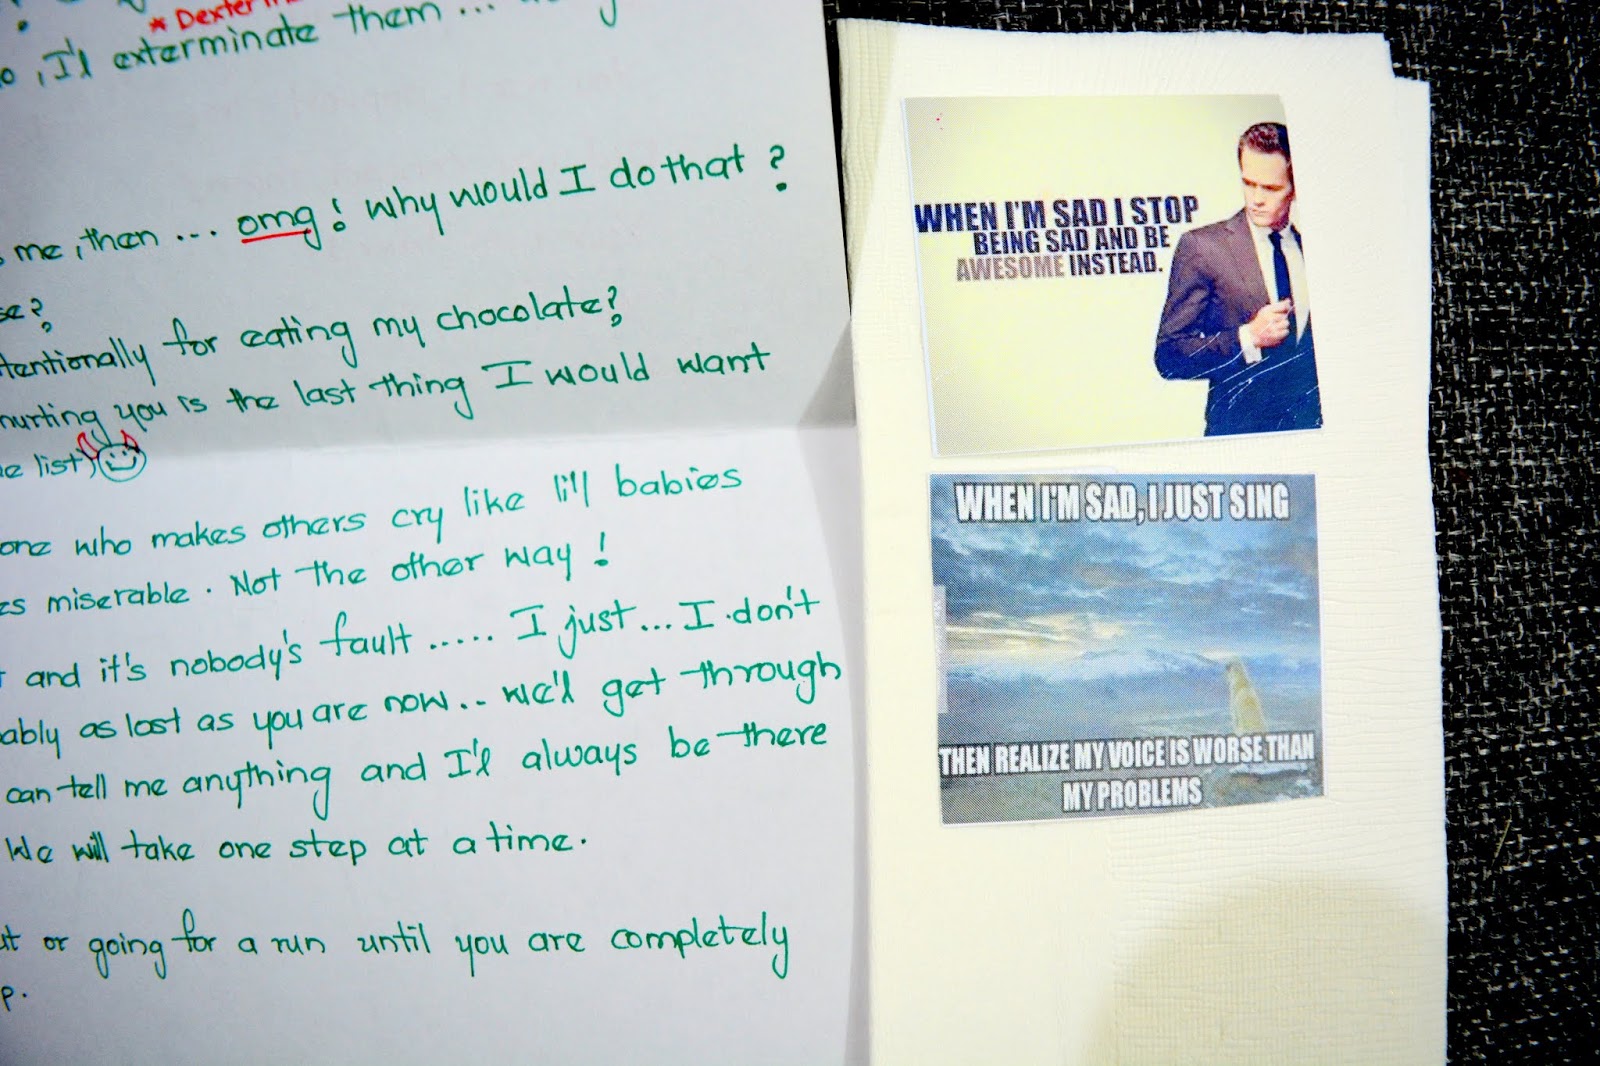 * Dexter
I'l exterminate them ...
me, then ... omg! why would I do that?
se?
tentionally for eating my chocolate?
hurting you is the last thing I would want
e list)
one who makes others cry like li'll babies
es miserable. Not the other way!
and it's nobody's fault ..... I just... I don't
ably as lost as you are now... we'l get through
can tell me anything and I'l always be there
We will take one step at a time.
ut or going for a run until you are completely
p.
WHEN I'M SAD I STOP
BEING SAD AND BE
AWESOME INSTEAD.
WHEN I'M SAD, I JUST SING
THEN REALIZE MY VOICE IS WORSE THAN
MY PROBLEMS